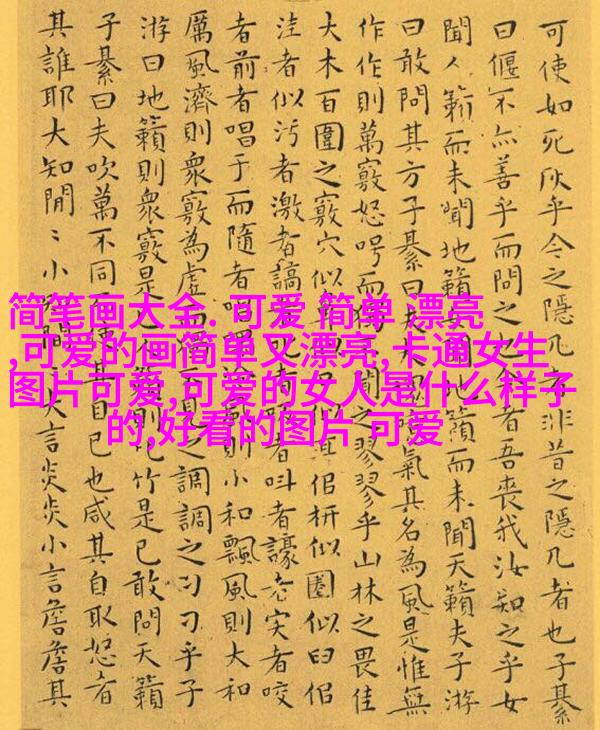 可使如死灰乎今之隱几者非昔之隱几者也子綦
曰偃不亦善乎而問之也今者吾喪我汝知之乎女
聞人籟而未聞地籟女聞地籟而未聞天籟夫子游
曰敢問其方子綦曰夫噫氣其名為風是惟無
作作則萬竅怒呺而聞之翏翏乎山林之畏佳
大木百圍之竅穴似鼻似侣枅似圈似臼侣
洼者似污者激者謞者者叫者譹者宎者咬
者前者唱于而隨者唱則小和飄風則大和
厲風濟則衆竅為虛之調調之刁刁乎子
游曰地籟則衆竅是已則比竹是已敢問天籟
子綦曰夫吹萬不同其自已也咸其自取怒者
其誰耶大知閒〻小閒〻大言炎炎小言詹詹其
简笔画大金. 可爱 简单 漂亮
,可爱的画简单又漂亮,卡通女生
图片可爱,可爱的女人是什么样子
的,好看的图片 可爱